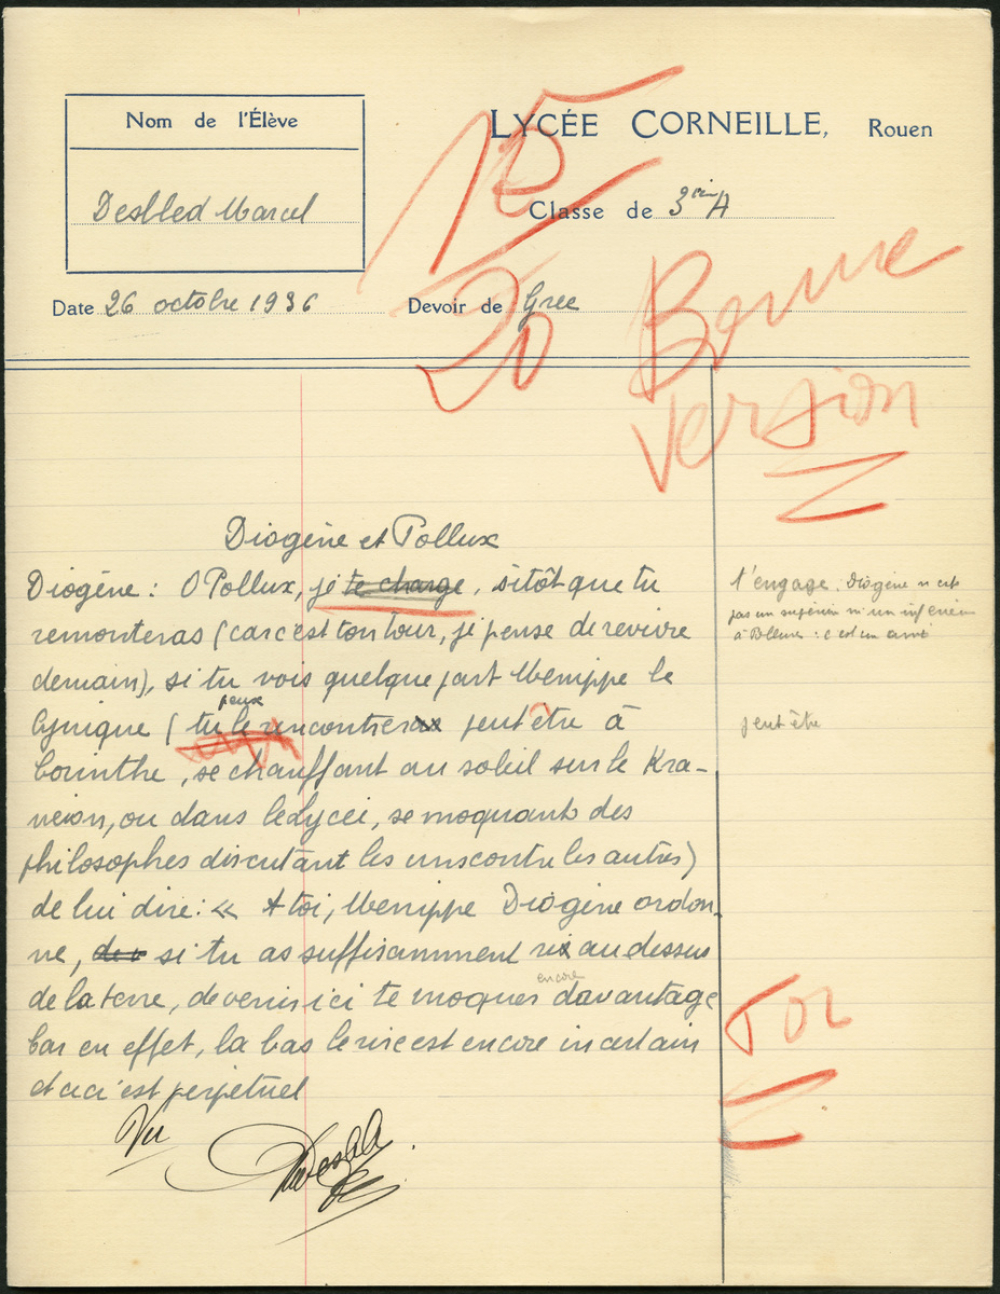 Nom de l'Élève
LYCÉE CORNEILLE, Rouen
15
20
Classe de 3ème A
Marcel
Date 26 octobre 1936
Devoir de Grec
Bonne
Version
Diogène et Pollux
Diogène : O Pollux, je te charge, sitôt que tu
remonteras (car c'est ton tour, je pense de revivre
demain), si tu vois quelque part Menippe le
peux
Cynique (tu le rencontrer peut être à
Corinthe, se chauffant au soleil sur le Kra-
neion, ou dans le Lycée, se moquant des
philosophes discutant les uns contre les autres)
de lui dire : « A toi, Menippe Diogène ordon-
ne, si tu as suffisamment ri au dessus
encore
de la terre, de venir ici te moquer davantage
Car en effet, la bas le rire est encore incertain
et ceci est perpetuel
t'engage. Diogène n'est
pas un supérieur ni un inférieur
à Pollux : c'est un ami
peut être
TOI
Vu